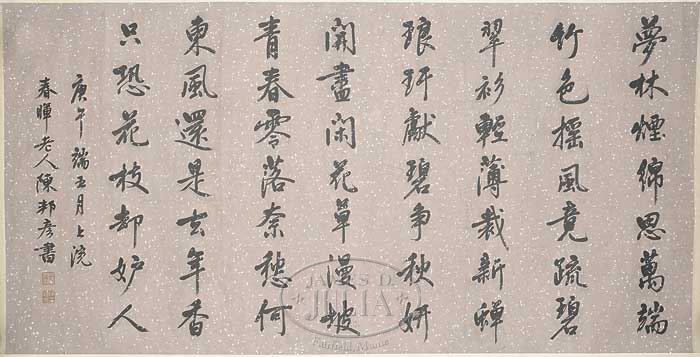 夢林煙綿思萬端
竹色摇風竟疏碧
翠衫輕薄裁新蟬
琅玕獻碧争秋妍
開盡闲花草漫坡
青春零落奈愁何
東風還是去年香
只恐花枝却妒人
庚午端五月上浣
春暉老人陳邦彦書
JAMES D.
JULIA
Fairfield, Maine